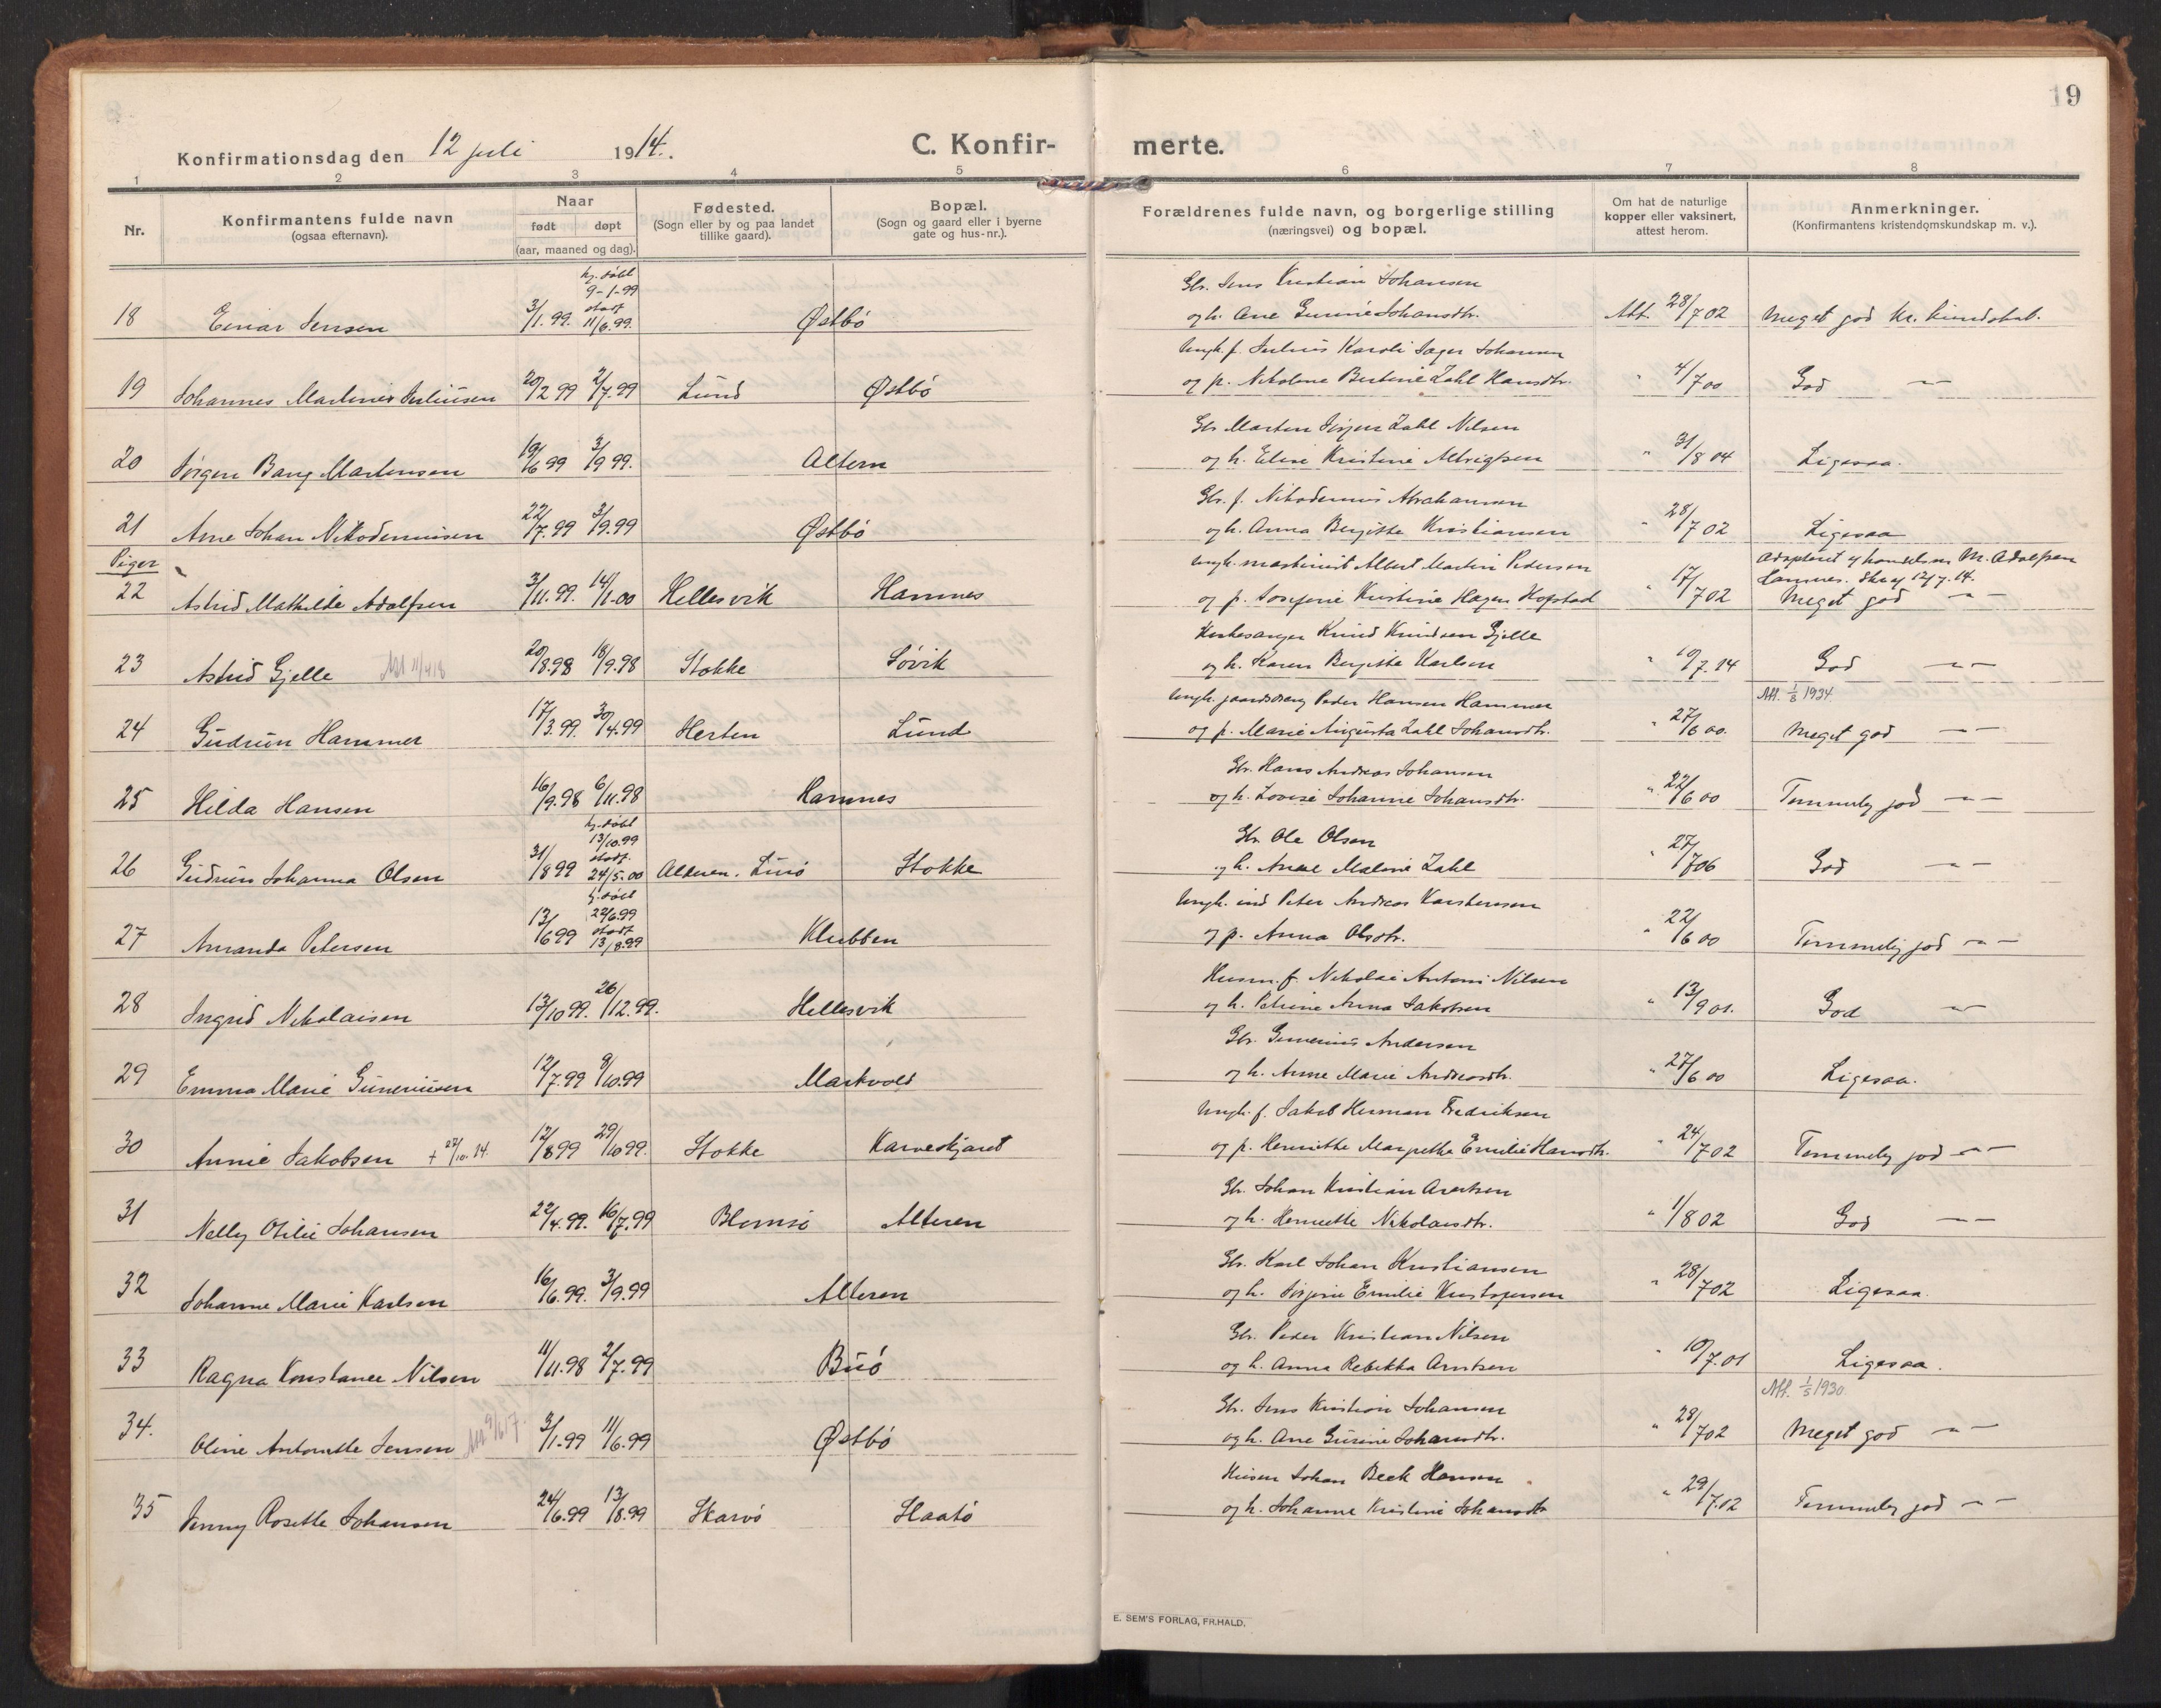 19
Konfirmationsdag den 12 juli 1914.
C. Konfir-merte.
1 2 3 4 5 6 7 8
Nr.
Konfirmantens fulde navn
(ogsaa efternavn).
Naar
født døpt
(aar, maaned og dag).
Fødested.
(Sogn eller by og paa landet
tillike gaard).
Bopæl.
(Sogn og gaard eller i byerne
gate og hus-nr.).
Forældrenes fulde navn, og borgerlige stilling
(næringsvei) og bopæl.
Om hat de naturlige
kopper eller vaksinert,
attest herom.
Anmerkninger.
(Konfirmantens kristendomskundskap m. v.).
hj. døbt
9-1-99
stadf.
Gbr. Jens Kristian Johansen
18 Einar Jensen 3/1.99. 11/6.99. Østbö og h. Ane Gurine Johansdtr. Att. 28/7 02 Meget god kr. kundskab.
Ungk. f. Julius Karoli Jager Johansen
19 Johannes Martines Juliusen 20/2 99 2/7.99 Lund Østbö og p. Nikoline Bertine Zahl Hansdtr. " 4/7 00 God — " —
Gbr Marten Jörgen Zahl Nilsen
20 Jörgen Bang Martensen 19/6 99 3/9 99. Altern og h. Elise Kristine Albrigtsen " 31/8 04 Ligesaa.
Gbr. f. Nikodemus Abrahamsen
21 Arne Johan Nikodemusen 22/7.99 3/9.99 Østbö og h. Anna Bergitte Kristiansen " 28/7 02 Ligesaa
Piger
Ungk. maskinist Albert Martin Pedersen
adopteret af handelsm. M. Adolfsen
Hamnes. Skr af 12/7.14.
22 Astrid Mathilde Adolfsen 3/11.99. 14/1.00 Hellesvik Hamnes og p. Josefine Kristine Hagen Hofstad " 17/7 02 Meget god — " —
Kirkesanger Knud Knudsen Gjelle
23 Astrid Gjelle Att 11/4 18 20/8.98 18/9.98 Stokke Sövik og h. Karen Bergitte Karlsen " 10/7.14 God — " —
Ungk. gaardsdreng Peder Hansen Hammer
Att. 1/8 1934
24 Gudrun Hammer 17/3.99. 30/4.99 Herten Lund og p. Marie Augusta Zahl Johansdtr. " 27/6 00. Meget god — " —
Gbr. Hans Andreas Johansen
25 Hilda Hansen 16/9.98 6/11.98 Hamnes og h. Lovise Johanne Johansdtr. " 22/6 00 Temmelig god — " —
hj. döbt
13/10.99
stadf.
Gbr. Ole Olsen
26 Gudrun Johanna Olsen 31/8 99 24/5.00 Alderen. Lurö Stokke og h. Anne Maline Zahl " 27/7 06 God — " —
hj. döbt
22/6.99
stadf
Ungk. ind Peter Andreas Karstensen
27 Amanda Petersen 13/6 99 13/8.99 Klubben og p. Anna Olsdtr. " 22/6 00 Temmelig god — " —
Husm. f. Nikolai Antoni Nilsen
28 Ingrid Nikolaisen 13/10 99. 26/12.99. Hellesvik og h. Petrine Anna Jakobsen " 13/9 01. God — " —
Gbr. Gunerius Andersen
29 Emma Marie Guneriusen 12/7.99 8/10.99 Markvold og h. Anne Marie Andreasdtr. " 27/6 00 Ligesaa.
Ungk. f. Jakob Herman Fredriksen
30 Annie Jakobsen + 22/10.14. 12/8 99 29/10 99. Stokke Karveskjæret og p. Henriette Margrethe Emilie Hansdtr. " 24/7 02 Temmelig god — " —
Gbr. Johan Kristian Arentsen
31 Nelly Otilie Johansen 22/4.99. 16/7.99 Blomsö Alteren og h. Henriette Nikolaisdtr. " 1/8 02 God — " —
Gbr. Karl Johan Kristiansen
32 Johanne Marie Karlsen 16/6.99. 3/9.99 Alteren og h. Jörgine Emilie Kristofersen " 28/7 02 Ligesaa.
Gbr. Peder Kristian Nilsen
33 Ragna Konstance Nilsen 11/11.98 2/7.99 Buö og h. Anna Rebekka Arntsen " 10/7.01 Ligesaa.
Att. 1/5 1930.
Gbr. Jens Kristian Johansen
34. Oline Antonette Jensen Att 9/6 17. 3/1.99 11/6.99 Østbö og h. Ane Gurine Johansdtr. " 28/7 02 Meget god — " —
Husm Johan Beck Hansen
35 Jenny Rosette Johansen 24/6.99 13/8.99 Skarvö Haatö og h. Johanne Kristine Johansdtr " 29/7.02 Temmelig god — " —
E. SEM'S FORLAG, FR.HALD.